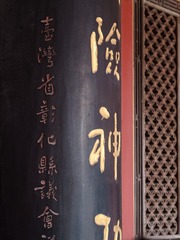 險神
臺灣省彰化縣議會